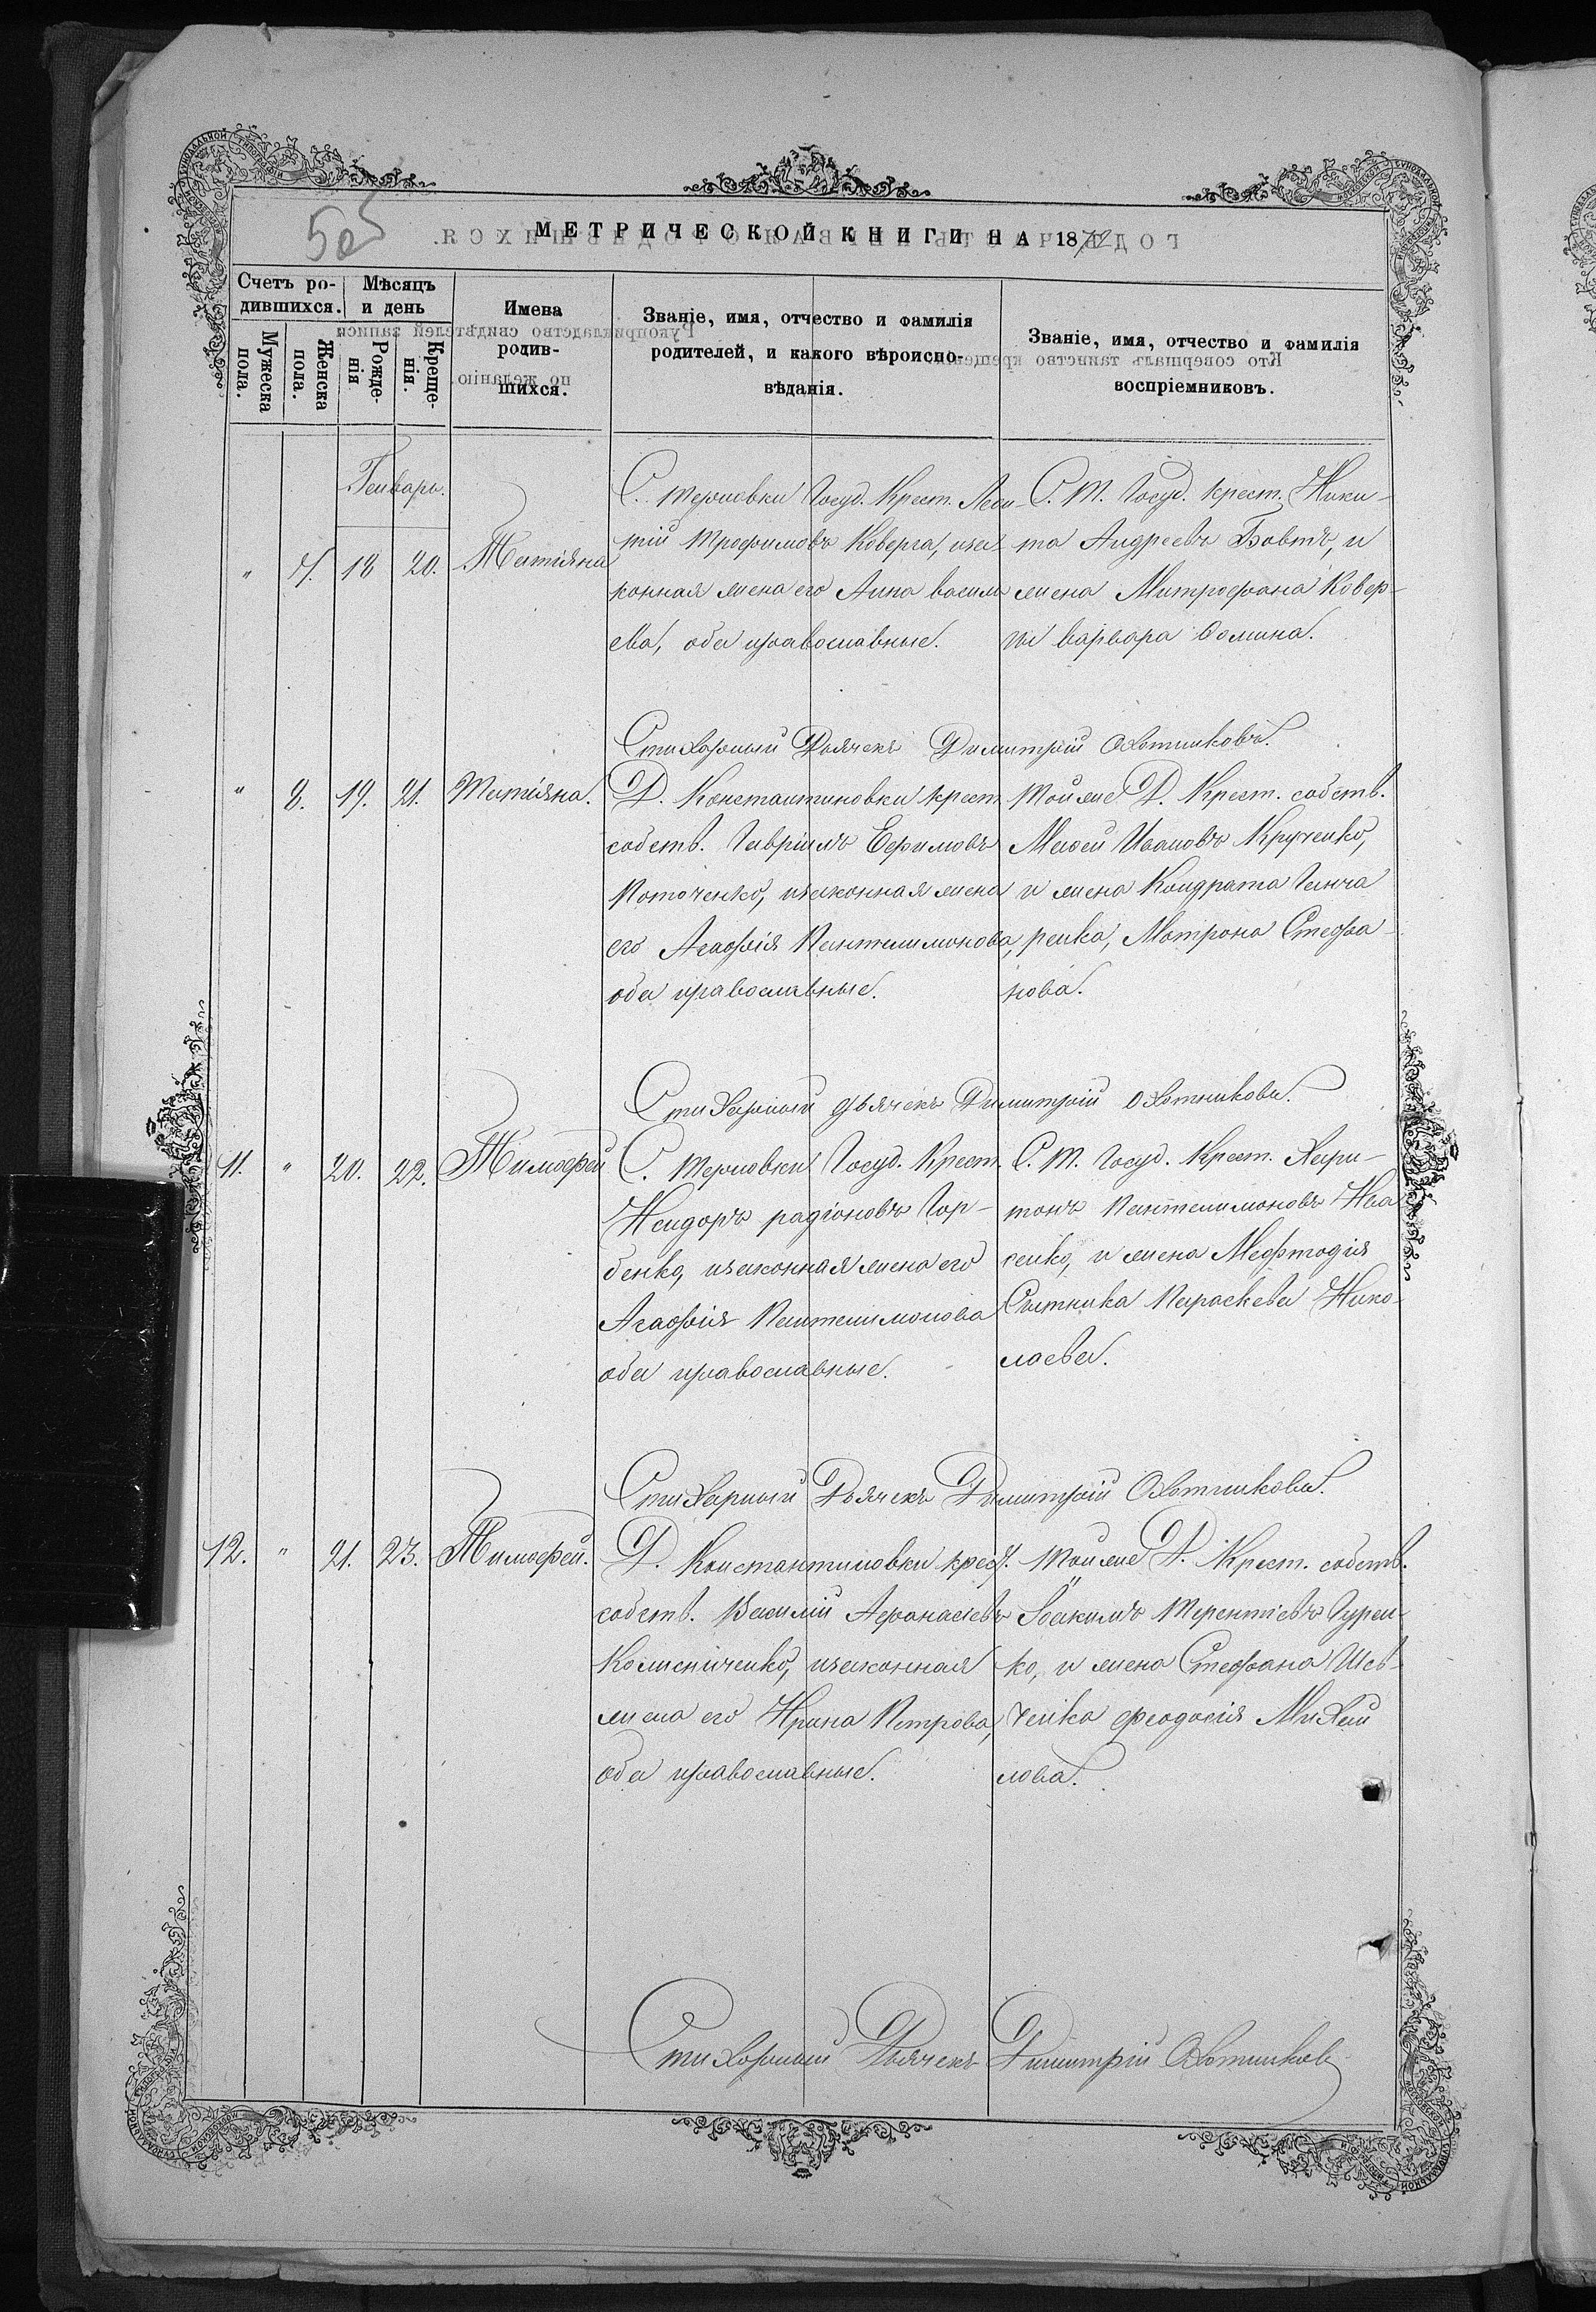 505
МЕТРИЧЕСКОЙ КНИГИ НА 1872
Счетъ ро-
дившихся.
Мѣсяцъ
и день
Имена
родив-
шихся.
Званіе, имя, отчество и фамилія
родителей, и какого вѣроиспо-
вѣданія.
Званіе, имя, отчество и фамилія
воспріемниковъ.
Мужеска
пола.
Женска
пола.
Рожде-
нія
Креще-
нія.
Генварь.
" 7. 18 20. Татіяна
С. Терновки Госуд. Крест. Леон-
тій Трофимовъ Коверга, иза-
конная жена его Анна Василь
ева, оба православные.
С. Т. Госуд. крест. Ники-
та Андреевъ Бовтъ, и
жена Митрофана Ковер-
ги Варвара Фомина.
Стихарный Дьячекъ Димитрій Охотниковъ.
" 8. 19. 21. Татіяна.
Д. Константиновки крест.
собств. Гавріилъ Ефимовъ
Поточенко, изаконная жена
его Агафія Пантелимонова,
оба православные.
Тойже Д. Крест. собств.
Моѵсей Ивановъ Крученко,
и жена Кондрата Ганча
ренка, Матрона Стефа-
нова.
Стихарный Дьячекъ Димитрій Охотниковъ.
11. " 20. 22. Тимофей
С. Терновки Госуд. Крест.
Исидоръ Радіоновъ Гор-
бенко, изаконная жена его
Агафія Пантелимонова
оба православные.
С. Т. Госуд. Крест. Хари-
тонъ Пантелимоновъ Иса
сенко, и жена Мефтодія
Сытника Параскева Нико-
лаева.
Стихарный Дьячекъ Димитрій Охотниковъ.
12. " 21. 23. Тимофей.
Д. Константиновки крест.
собств. Василій Афанасіевъ
Колисниченко, изаконная
жена его Ирина Петрова,
оба православные.
Тойже Д. Крест. собств.
Іоакимъ Терентіевъ Гурен-
ко, и жена Стефана Шев-
ченка Феодосія Михаи
лова.
Стихарный Дьячекъ Димитрій Охотниковъ